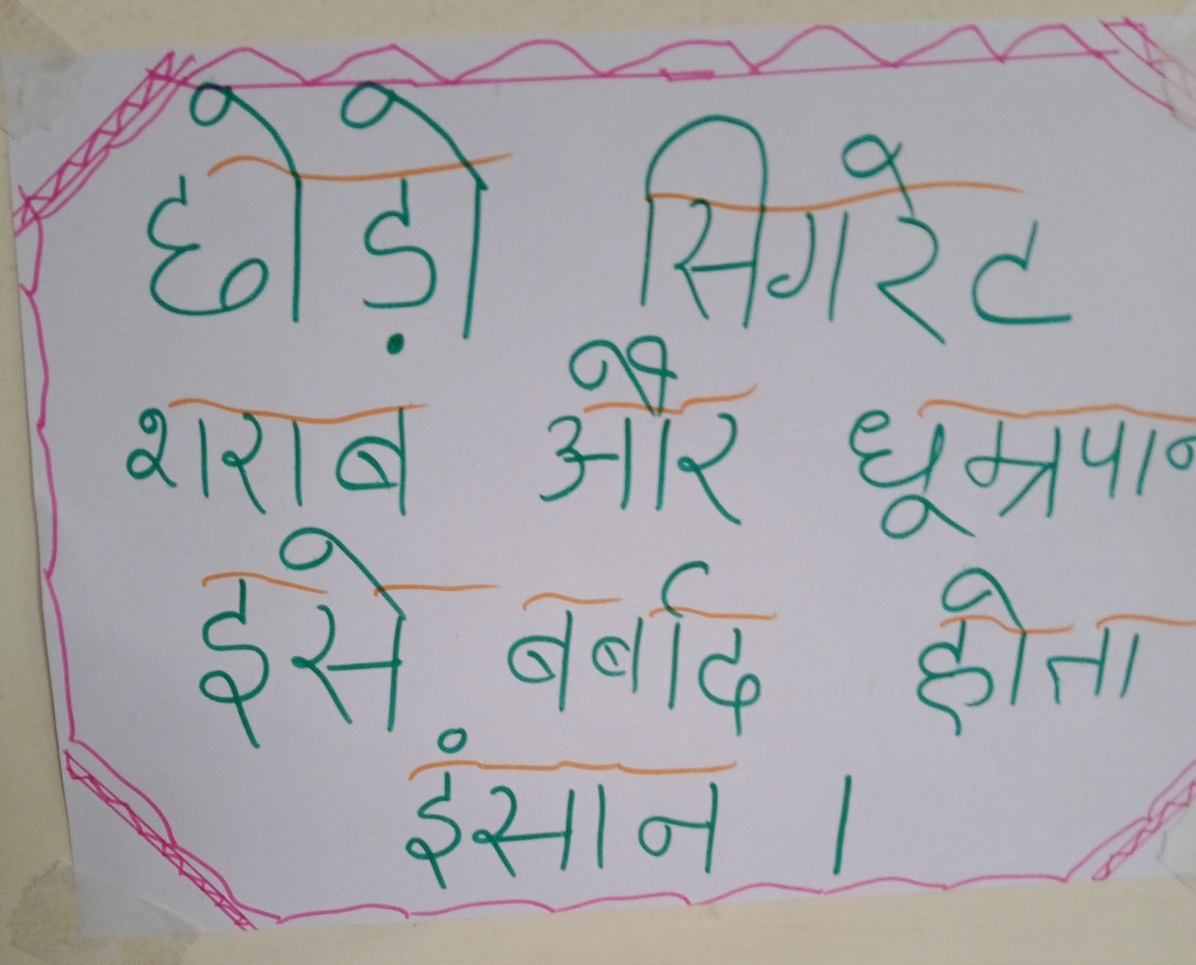 छोड़ो सिगरेट
शराब और धूम्रपान
इसे बर्बाद होता
इंसान ।